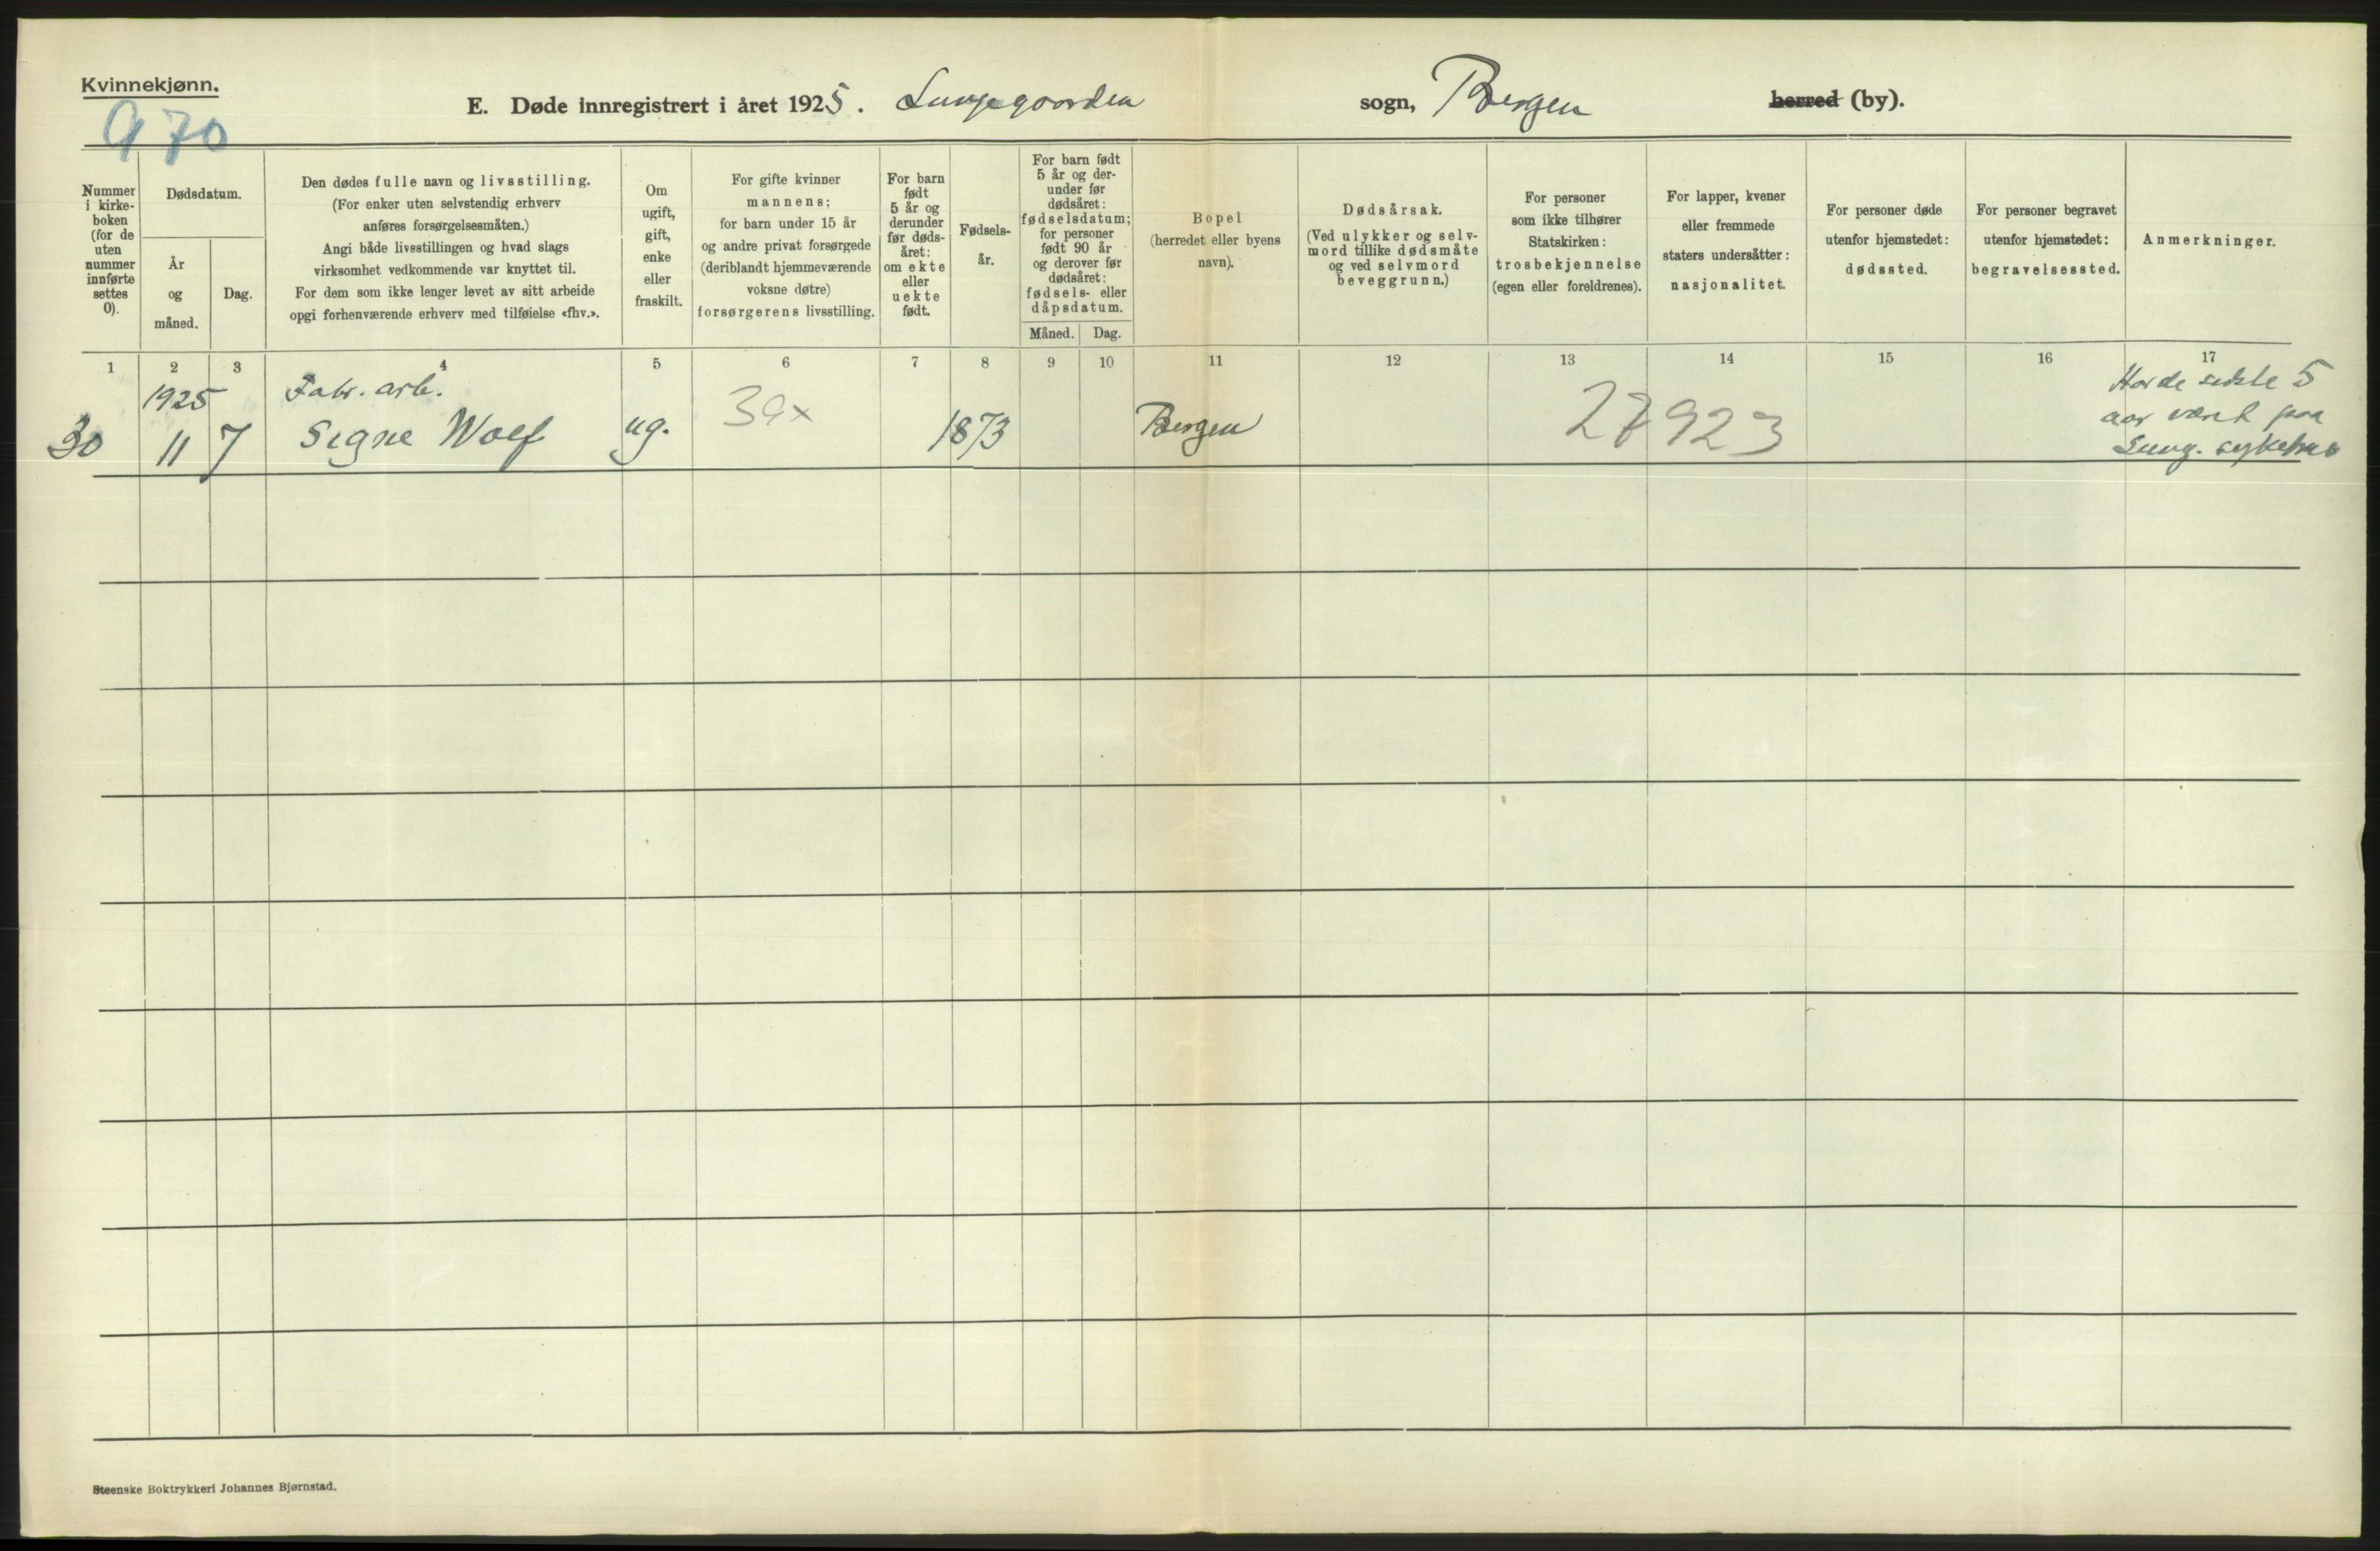 Kvinnekjønn.
970
E. Døde innregistrert i året 1925. Lungegaarden sogn, Bergen herred (by).
Nummer
i kirke-
boken
(for de
uten
nummer
innførte
settes
0).
Dødsdatum.
År
og
måned.
Dag.
Den dødes fulle navn og livsstilling.
(For enker uten selvstendig erhverv
anføres forsørgelsesmåten.)
Angi både livsstillingen og hvad slags
virksomhet vedkommende var knyttet til.
For dem som ikke lenger levet av sitt arbeide
opgi forhenværende erhverv med tilføielse «fhv.».
Om
ugift,
gift,
enke
eller
fraskilt.
For gifte kvinner
mannens;
for barn under 15 år
og andre privat forsørgede
(deriblandt hjemmeværende
voksne døtre)
forsørgerens livsstilling.
For barn
født
5 år og
derunder
før døds-
året:
om ekte
eller
uekte
født.
Fødsels-
år.
For barn født
5 år og der-
under før
dødsåret:
fødselsdatum;
for personer
født 90 år
og derover før
dødsåret:
fødsels- eller
dåpsdatum.
Måned. Dag.
Bopel
(herredet eller byens
navn).
Dødsårsak.
(Ved ulykker og selv-
mord tillike dødsmåte
og ved selvmord
beveggrunn.)
For personer
som ikke tilhører
Statskirken:
trosbekjennelse
(egen eller foreldrenes).
For lapper, kvener
eller fremmede
staters undersåtter:
nasjonalitet.
For personer døde
utenfor hjemstedet:
dødssted.
For personer begravet
utenfor hjemstedet:
begravelsessted.
Anmerkninger.
1 2 3 4 5 6 7 8 9 10 11 12 13 14 15 16 17
1925 Fabr. arb.
30 11 7 Signe Wolf ug. 39x 1873 Bergen 27923
Havde sidste 5
aar været paa
Lung. sykehus
Steenske Boktrykkeri Johannes Bjørnstad.